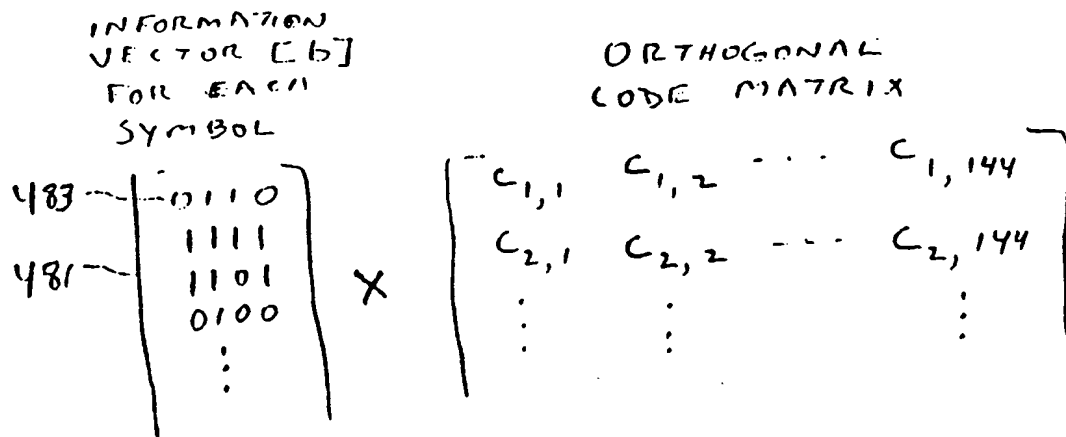 INFORMATION
VECTOR [b]
FOR EACH
SYMBOL
ORTHOGONAL
CODE MATRIX
483 0110
1111
481 1101
0100
⋮
X
C1,1 C1,2 ---- C1,144
C2,1 C2,2 ---- C2,144
⋮ ⋮ ⋮